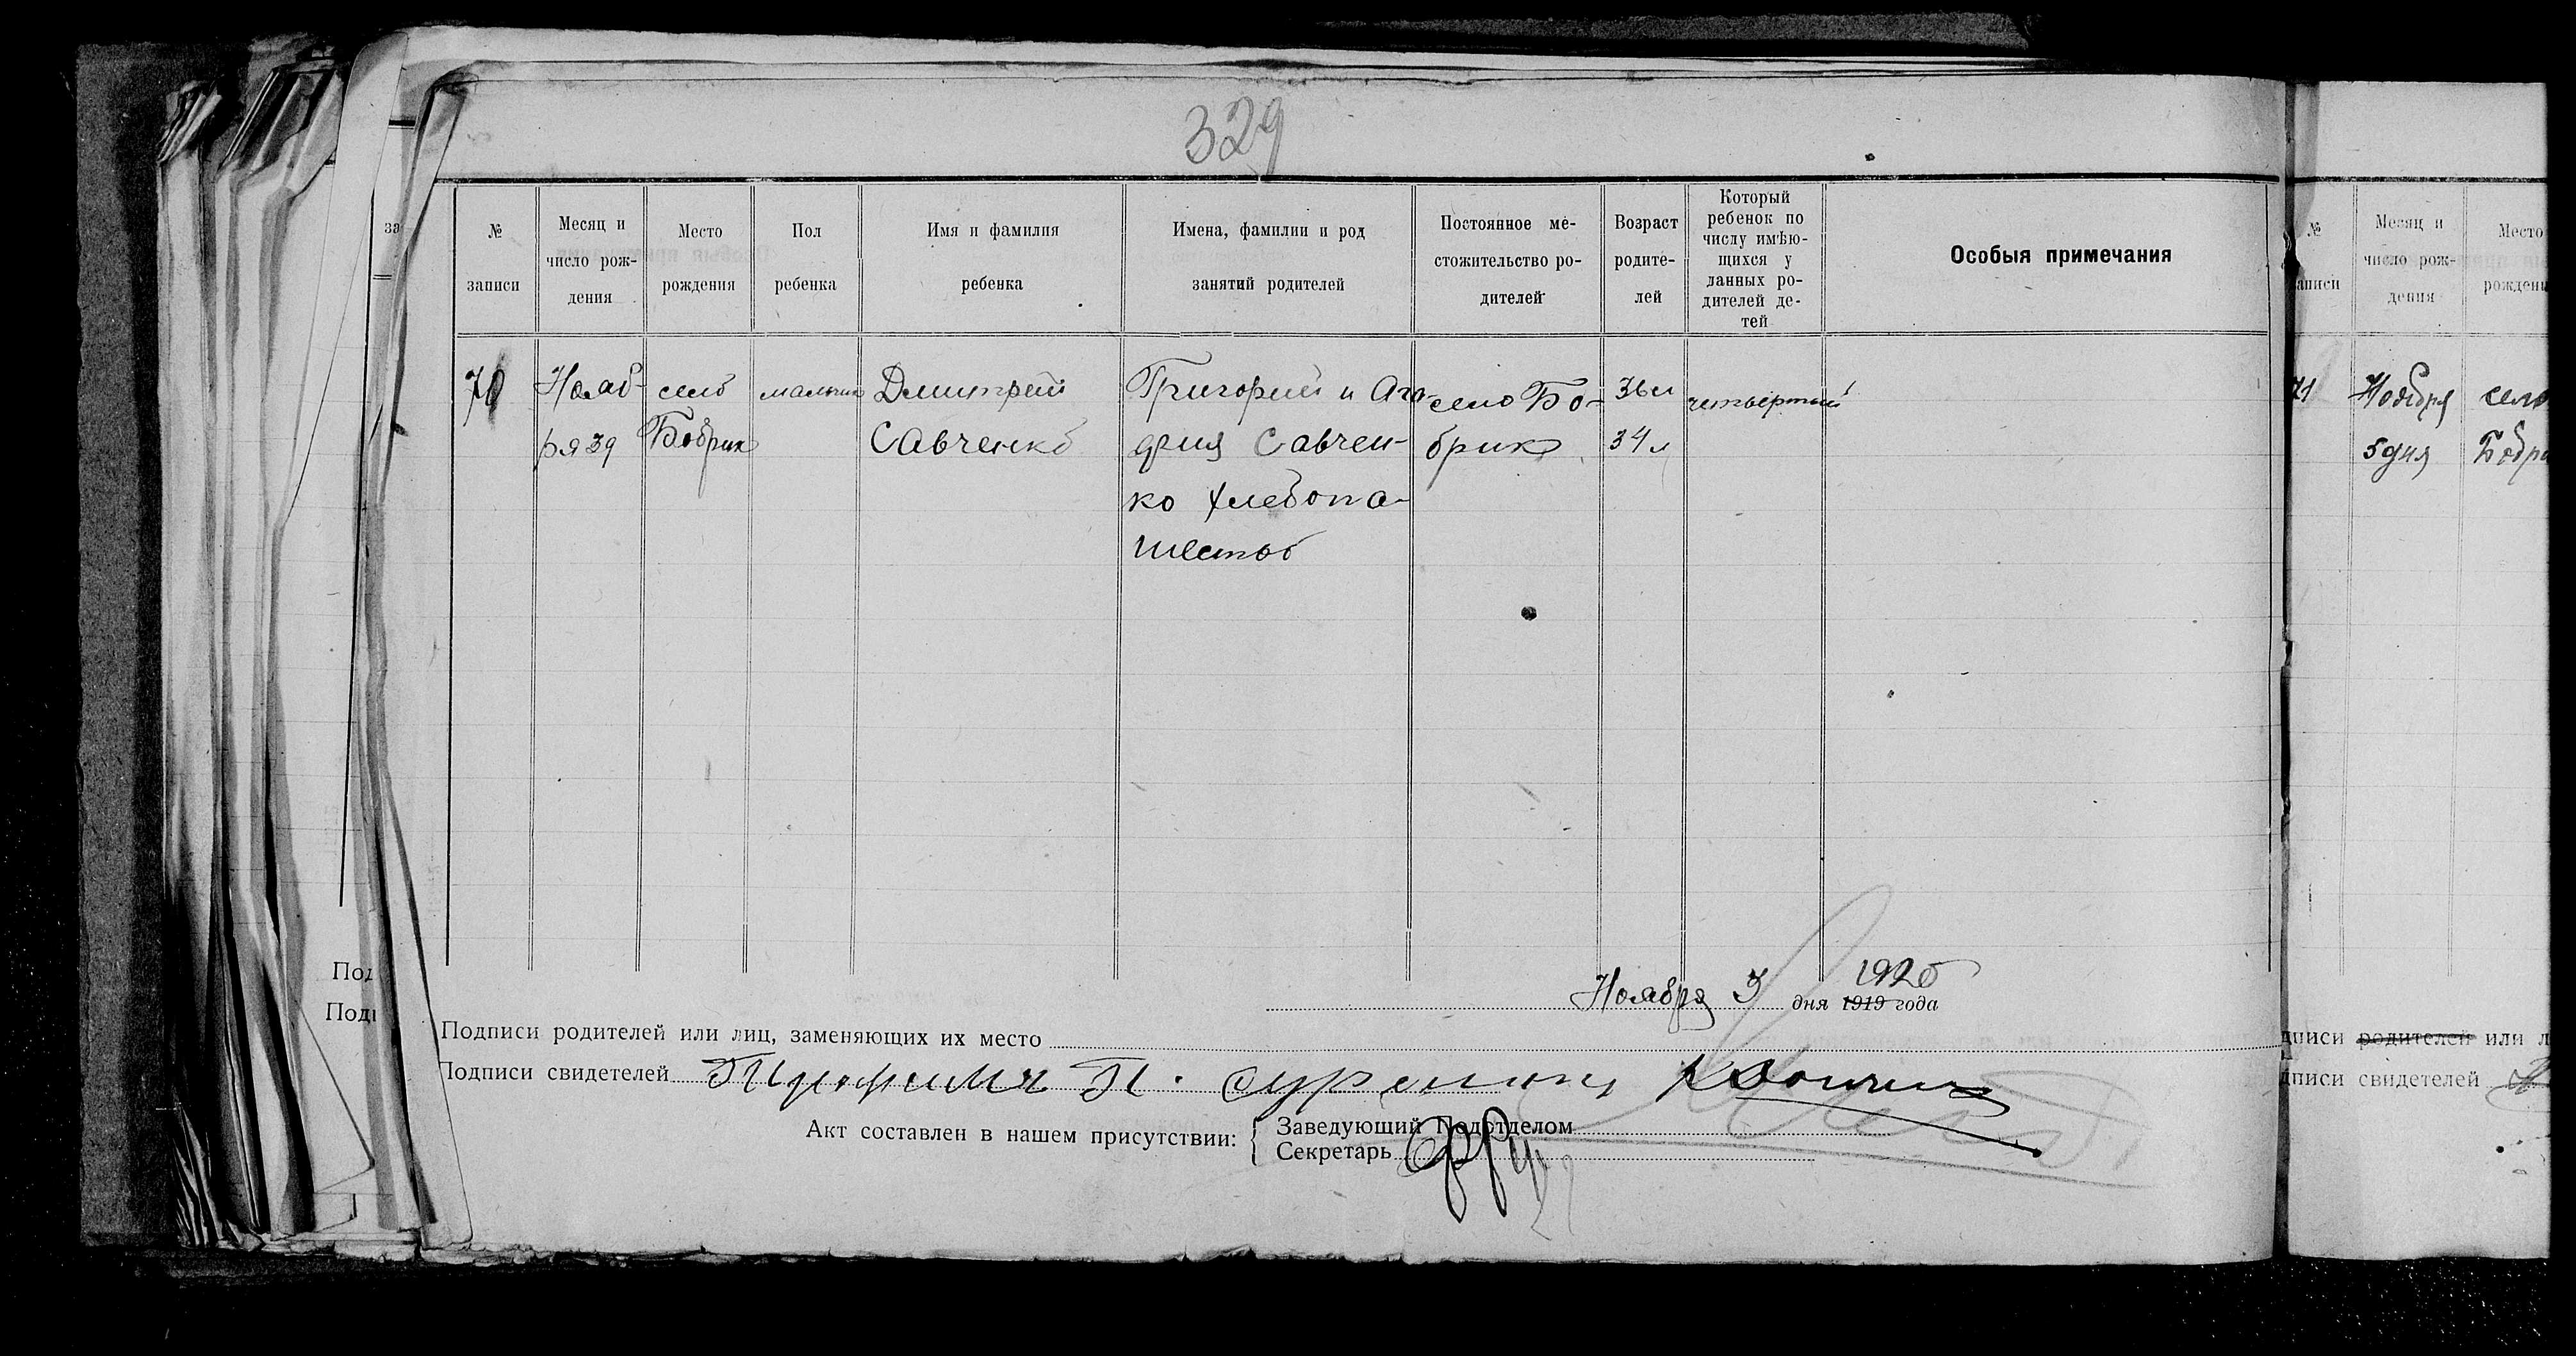 329
№ записи
Месяц и число рождения
Место рождения
Пол ребенка
Имя и фамилия ребенка
Имена, фамилии и род занятий родителей
Постоянное местожительство родителей
Возраст родителей
Который ребенок по числу имѣющихся у данных родителей детей
Особыя примечания
70
Нояб-
ря 3д
село
Бобрик
мальчик
Дмитрий
Савченко
Григорий и Ага-
фия Савчен-
ко хлебопа-
шество
село Бо-
брик
36 л
34 л
четвертый
Ноября 3 дня 1919 года
1920
Подписи родителей или лиц, заменяющих их место
Подписи свидетелей
Акт составлен в нашем присутствии:
Заведующий Подотделом
Секретарь
за
Под
Под
№
записи
Месяц и
число рож-
дения
Место
рождени
71
Ноября
5 дня
село
Бобри
дписи родителей или л
дписи свидетелей